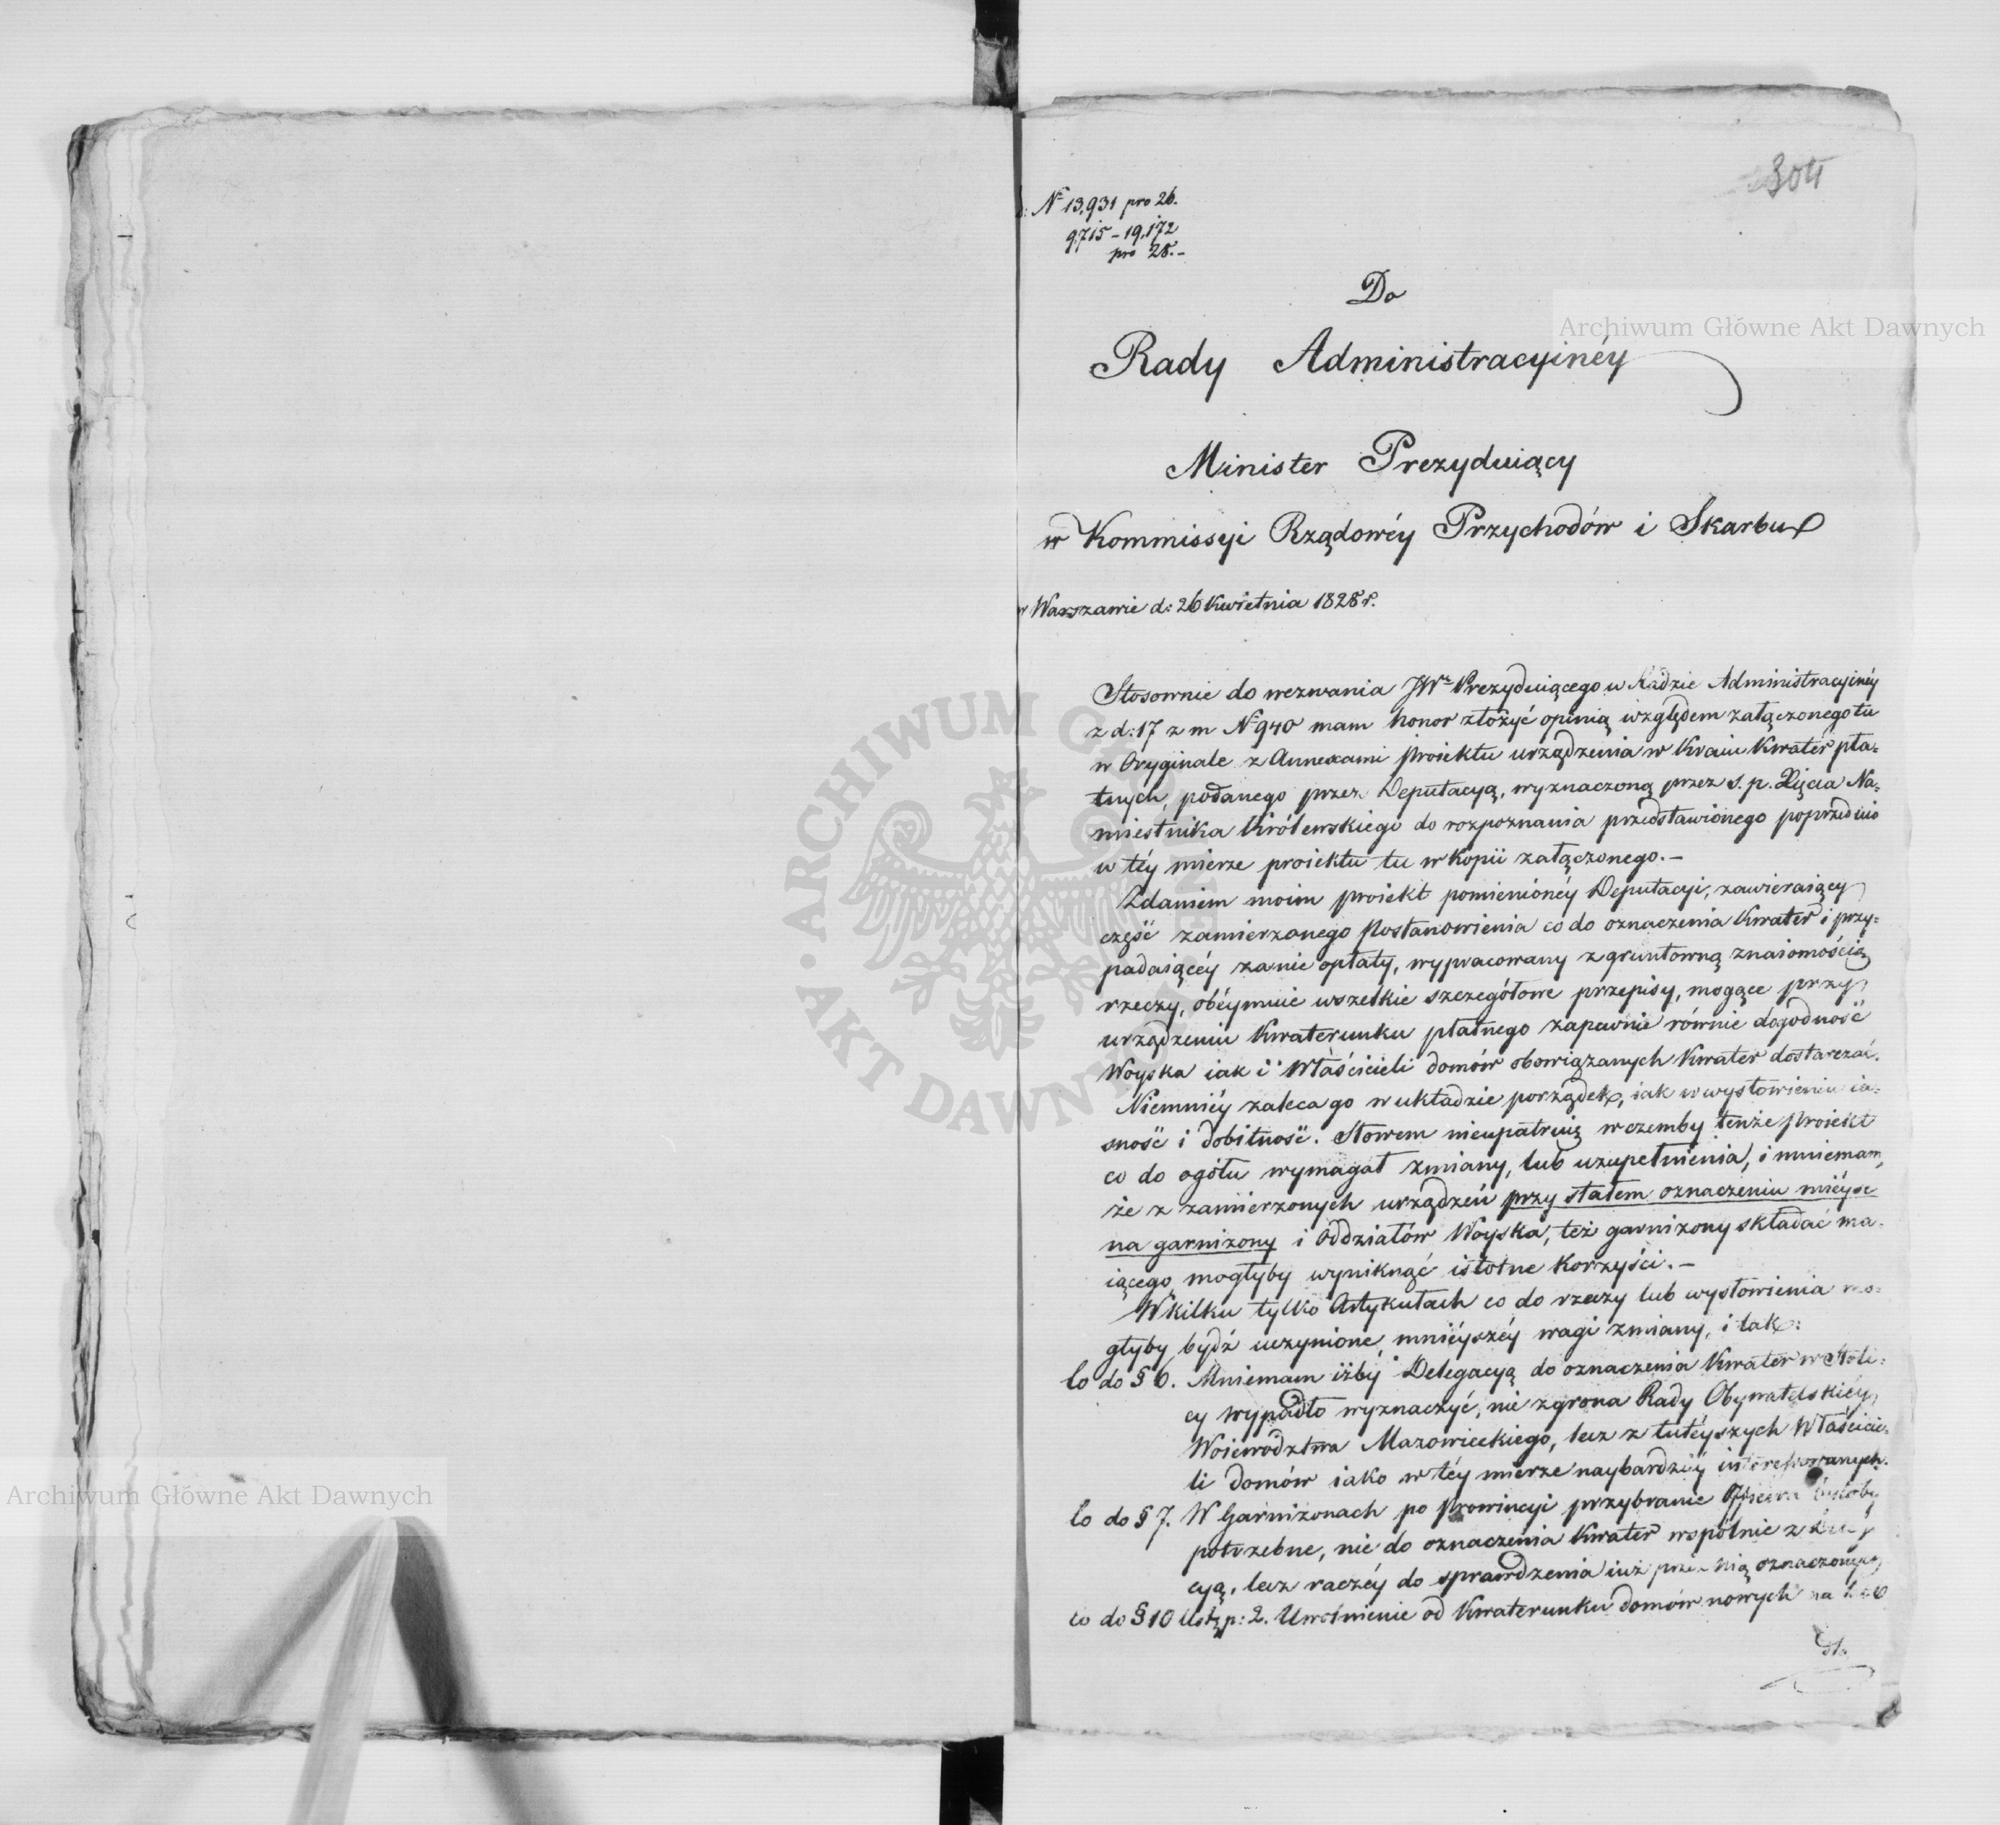 304
N 13,931 pro 26.
9,715 - 19,172
pro 28. -
Do
Rady Administracyinéy
Minister Prezyduiący
w Kommissyi Rządowéy Przychodów i Skarbu
w Warszawie d: 26 Kwietnia 1828 r.
Stosownie do wezwania JWº Prezyduiącego w Radzie Administracyinéy
z d: 17 z m Nº 940 mam honor złożyć opinią względem załączonego tu
w Oryginale z Annexami proiektu urządzenia w Kraiu Kwater pła-
tnych, podanego przez Deputacyą, wyznaczoną przez s. p. Xięcia Na-
miestnika Królewskiego do rozpoznania przedstawionego poprzednio
w téy mierze proiektu tu w Kopii załączonego. -
Zdaniem moim proiekt pomienionéy Deputacyi, zawieraiący
część zamierzonego Postanowienia co do oznaczenia Kwater i przy-
padaiącéy za nie opłaty, wypracowany z gruntowną znaiomością
rzeczy, obéymuie wszelkie szczegółowe przepisy, mogące przy
urządzeniu Kwaterunku płatnego zapewnić równie dogodność
Woyska iak i Właścicieli domów obowiązanych Kwater dostarczać.
Niemniéy zaleca go w układzie porządek, iak w wysłowieniu ia-
sność i dobitność. Słowem nieupatruię w czemby tenże proiekt
co do ogółu wymagał zmiany, lub uzupełnienia, i mniemam,
że z zamierzonych urządzeń przy stałem oznaczeniu mieysc
na garnizony i Oddziałów Woyska, też garnizony składać ma-
iącego, mogłyby wyniknąć istotne korzyści. -
W kilku tylko Artykułach co do rzeczy lub wysłowienia mo-
głyby bydź uczynione, mniéyszéy wagi zmiany, i tak:
Co do § 6. Mniemam iżby Delegacyą do oznaczenia Kwater w Stoli-
cy wypadło wyznaczyć, nie z grona Rady Obywatelskiéy
Woiewodztwa Mazowieckiego, lecz z tutéyszych Właścicie-
li domów iako w téy mierze naybardziéy interessowanych.
Co do § 7. W Garnizonach po prowincyi przybranie Oficera byłoby
potrzebne, nie do oznaczenia Kwater wspólnie z
cyą, lecz raczéy do sprawdzenia iuż przez nią oznaczonych
co do § 10 Ustęp: 2. Uwolnienie od Kwaterunku domów nowych na
Archiwum Główne Akt Dawnych
Archiwum Główne Akt Dawnych
ARCHIWUM GŁÓWNE
AKT DAWNYCH